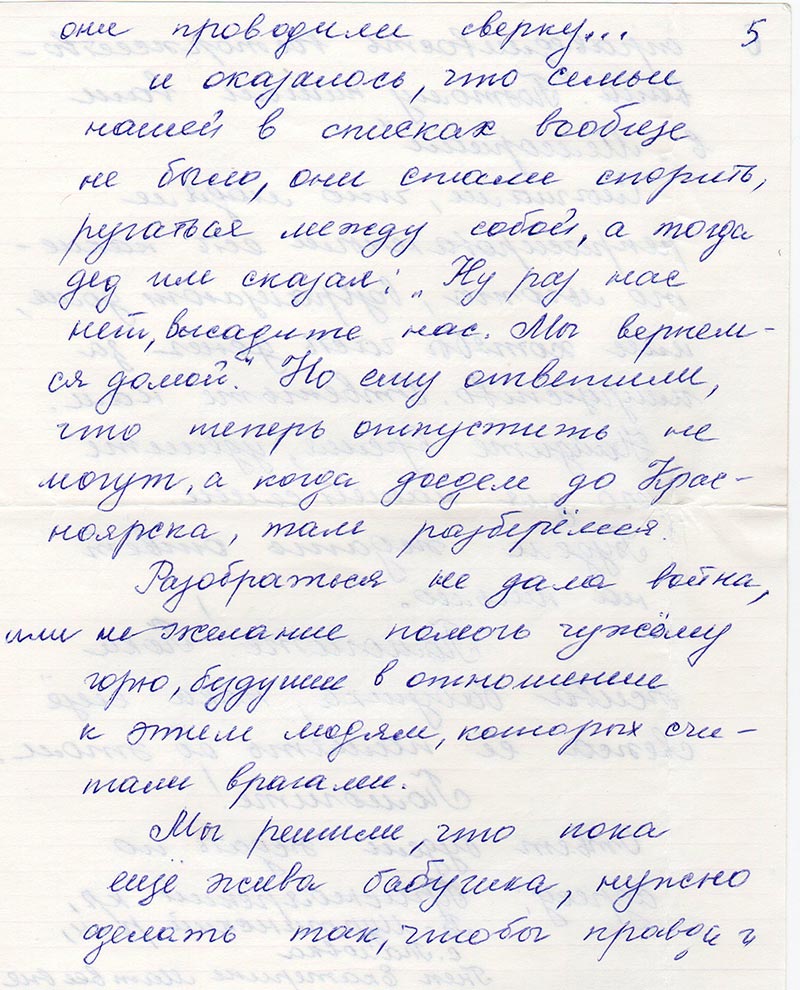 5
они проводили сверку...
и оказалось, что семьи
нашей в списках вообще
не было, они стали спорить,
ругаться между собой, а тогда
дед им сказал: „Ну раз нас
нет, высадите нас. Мы вернем-
ся домой." Но ему ответили,
что теперь отпустить не
могут, а когда доедем до Крас-
ноярска, там разберёмся.
Разобраться не дала война,
или не желание помочь чужому
горю, будущим в отношении
к этим людям, которых счи-
тали врагами.
Мы решили, что пока
ещё жива бабушка, нужно
сделать так, чтобы правда и